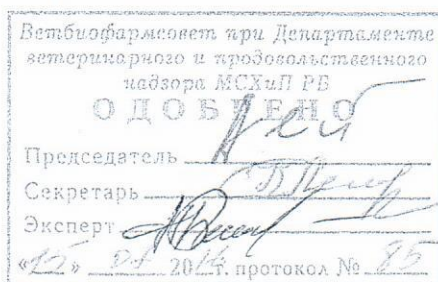 Ветбиофармсовет при Департаменте
ветеринарного и продовольственного
надзора МСХиП РБ
ОДОБРЕНО
Председатель
Секретарь
Эксперт
« » 20 г. протокол №